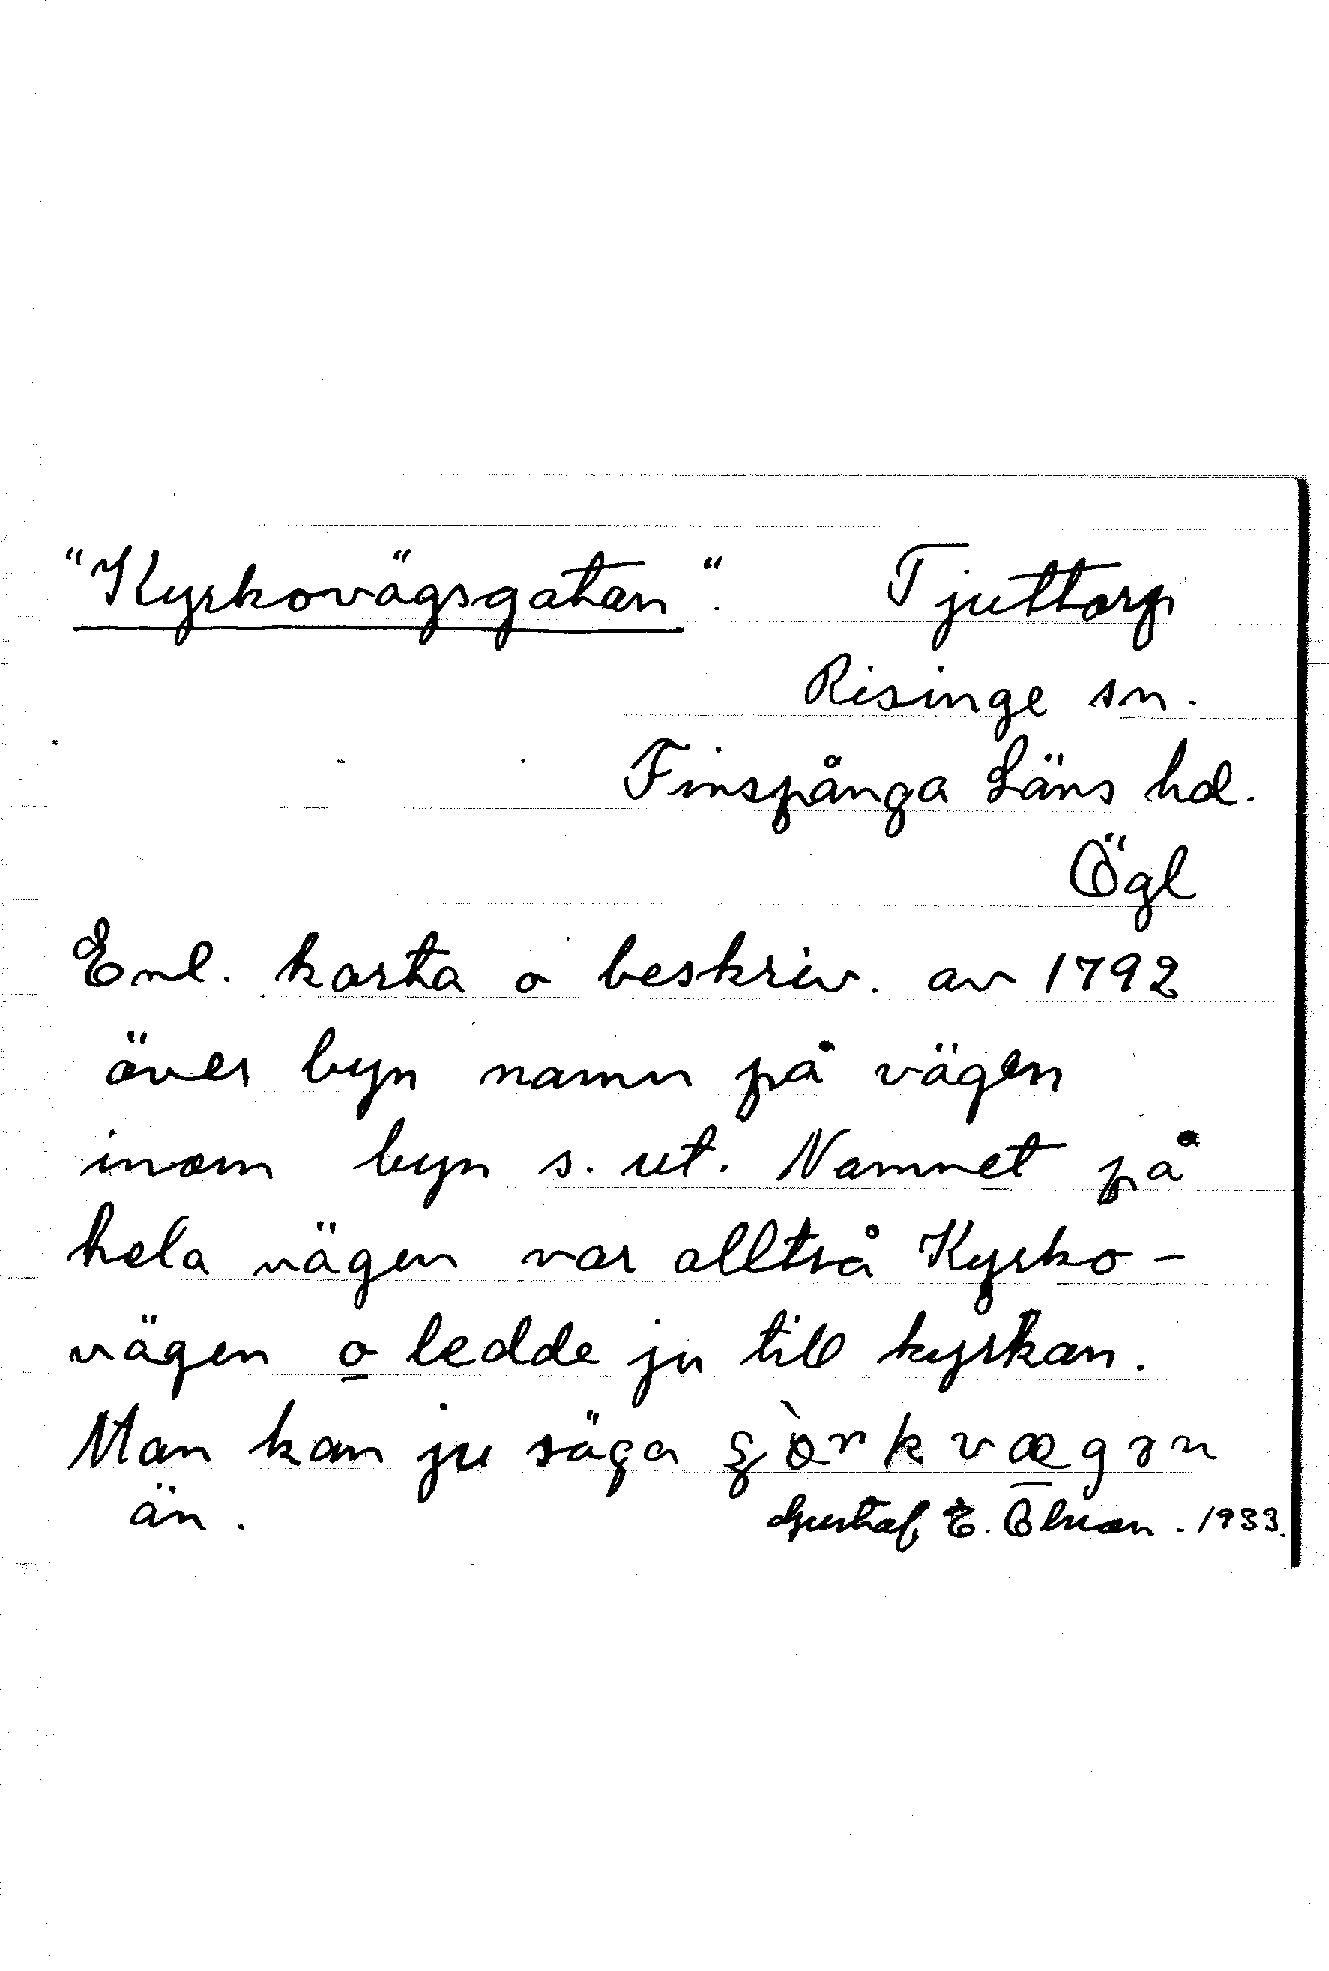 "Kyrkovägsgatan". Tjuttorp
Risinge sn.
Finspånga Läns hd.
Ögl
Enl. karta o beskriv. av 1792
över byn namn på vägen
inom byn s. ut. Namnet på
hela vägen var alltså Kyrko-
vägen o ledde ju till kyrkan.
Man kan ju säga
än. Gustaf E. 1933.